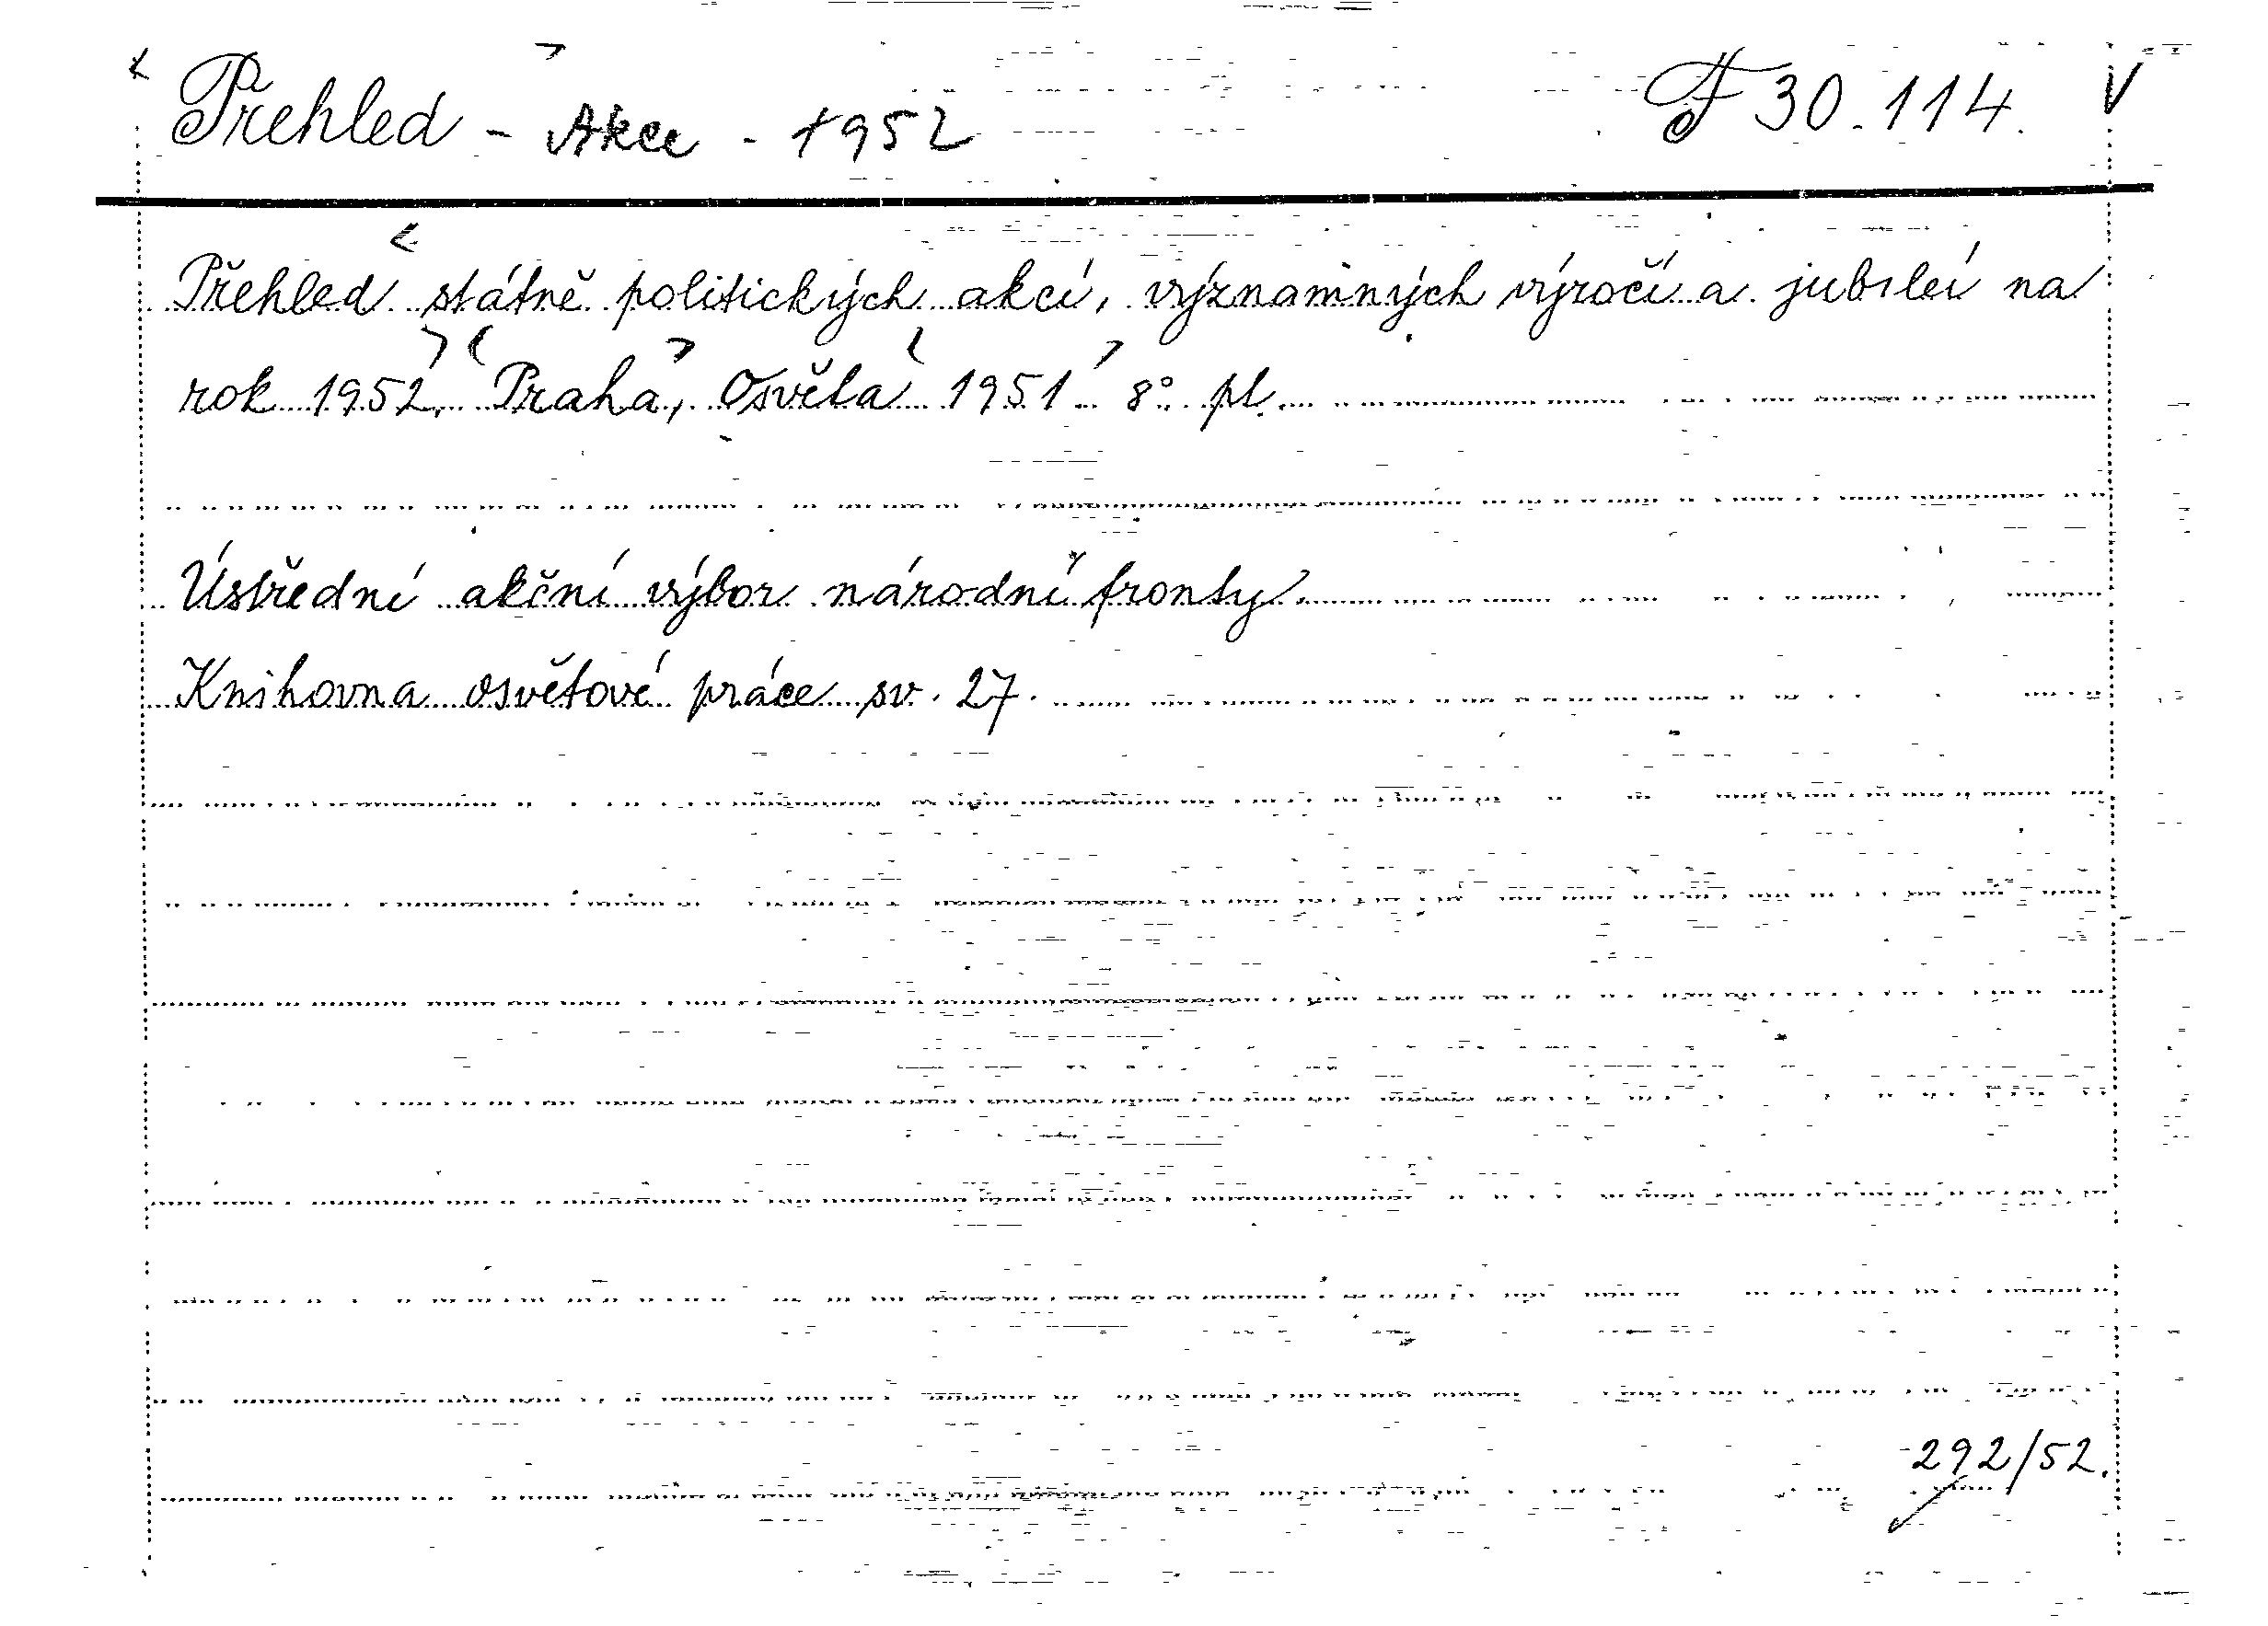 Přehled - Akce - 1952 F 30.114. V
Přehled státně politických akcí, významných výročí a jubileí na
rok 1952, Praha, Osvěta 1951 8° pl.
Ústřední akční výbor národní fronty.
Knihovna osvětové práce sv. 27.
292/52.